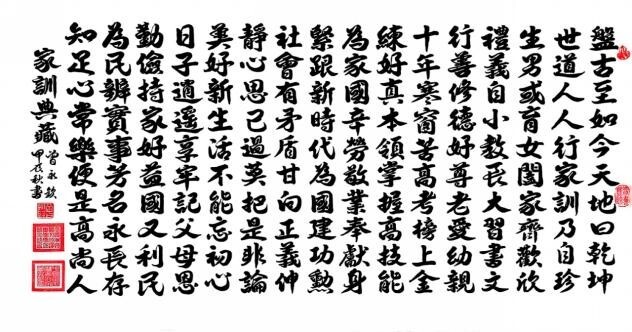 盤古至如今天地曰乾坤
世道人人行家訓乃自珍
生男或育女闔家齊歡欣
禮義自小教長大習書文
行善修德好尊老愛幼親
十年寒窗苦高考榜上金
練好真本領掌握高技能
為家國辛勞敬業奉獻身
緊跟新時代為國建功勳
社會有矛盾甘向正義伸
靜心思己過莫把是非論
美好新生活不能忘初心
日子逍遙享牢記父母恩
勤儉持家好益國又利民
為民辦實事芳名永長存
知足心常樂便是高尚人
家訓典藏
曾永
甲辰秋書